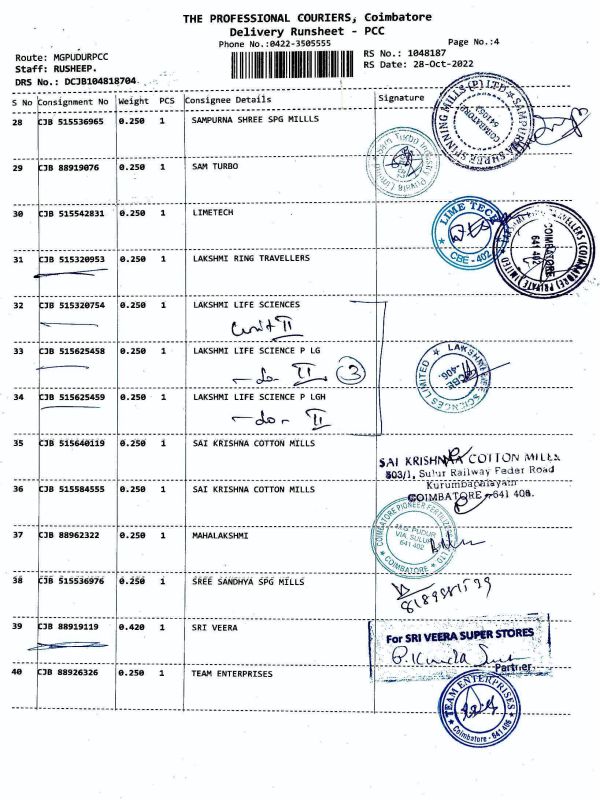 THE PROFESSIONAL COURIERS, Coimbatore
Delivery Runsheet - PCC
Phone No.:0422-3505555
Page No.:4
Route: MGPUDURPCC
Staff: RUSHEEP.
DRS No.: DCJB104818704
RS No.: 1048187
RS Date: 28-Oct-2022
S No Consignment No Weight PCS Consignee Details Signature
28 CJB 515536965 0.250 1 SAMPURNA SHREE SPG MILLLS
29 CJB 88919076 0.250 1 SAM TURBO
30 CJB 515542831 0.250 1 LIMETECH
LIME TECH
CBE - 402
31 CJB 515320953 0.250 1 LAKSHMI RING TRAVELLERS
COIMBATORE
641 402
32 CJB 515320754 0.250 1 LAKSHMI LIFE SCIENCES
Unit II
33 CJB 515625458 0.250 1 LAKSHMI LIFE SCIENCE P LG
- do - II 3
34 CJB 515625459 0.250 1 LAKSHMI LIFE SCIENCE P LGH
- do - II
35 CJB 515640119 0.250 1 SAI KRISHNA COTTON MILLS
SAI KRISHNA COTTON MILLS
503/1, Sulur Railway Feder Road
Kurumbapalayam
COIMBATORE - 641 406.
36 CJB 515584555 0.250 1 SAI KRISHNA COTTON MILLS
37 CJB 88962322 0.250 1 MAHALAKSHMI
COIMBATORE PIONEER FERTILIZERS LTD
M.G. PUDUR
VIA. SULUR
641 402
COIMBATORE
38 CJB 515536976 0.250 1 SREE SANDHYA SPG MILLS
39 CJB 88919119 0.420 1 SRI VEERA
For SRI VEERA SUPER STORES
Partner
40 CJB 88926326 0.250 1 TEAM ENTERPRISES
TEAM ENTERPRISES
Coimbatore - 641 406